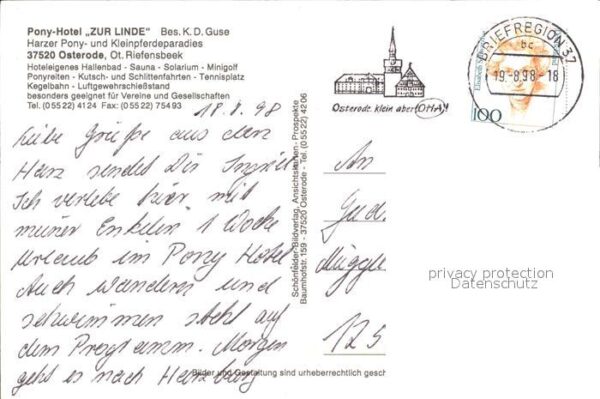 Pony-Hotel „ZUR LINDE" Bes. K. D. Guse
Harzer Pony- und Kleinpferdeparadies
37520 Osterode, Ot. Riefensbeek
Hoteleigenes Hallenbad - Sauna - Solarium - Minigolf
Ponyreiten - Kutsch- und Schlittenfahrten - Tennisplatz
Kegelbahn - Luftgewehrschießstand
besonders geeignet für Vereine und Gesellschaften
Tel. (0 55 22) 41 24 Fax: (0 55 22) 754 93
18.8.98
Liebe Grüße aus dem
Harz sendet Dir Ingrid.
Ich verlebe hier mit
meiner Enkelin 1 Woche
Urlaub im Pony Hotel
Auch wandern und
schwimmen steht auf
dem Programm. Morgen
geht es nach Harzburg
Schönfelder Bildverlag, Ansichtskarten - Prospekte
Baumhofstr. 159 - 37520 Osterode - Tel. (0 55 22) 42 06
Osterode. Klein aber OHA!
BRIEFREGION 37
bc
19.-8.98-18
100
An
Gud.
Müggel
125
privacy protection
Datenschutz
Bilder und Gestaltung sind urheberrechtlich gesch